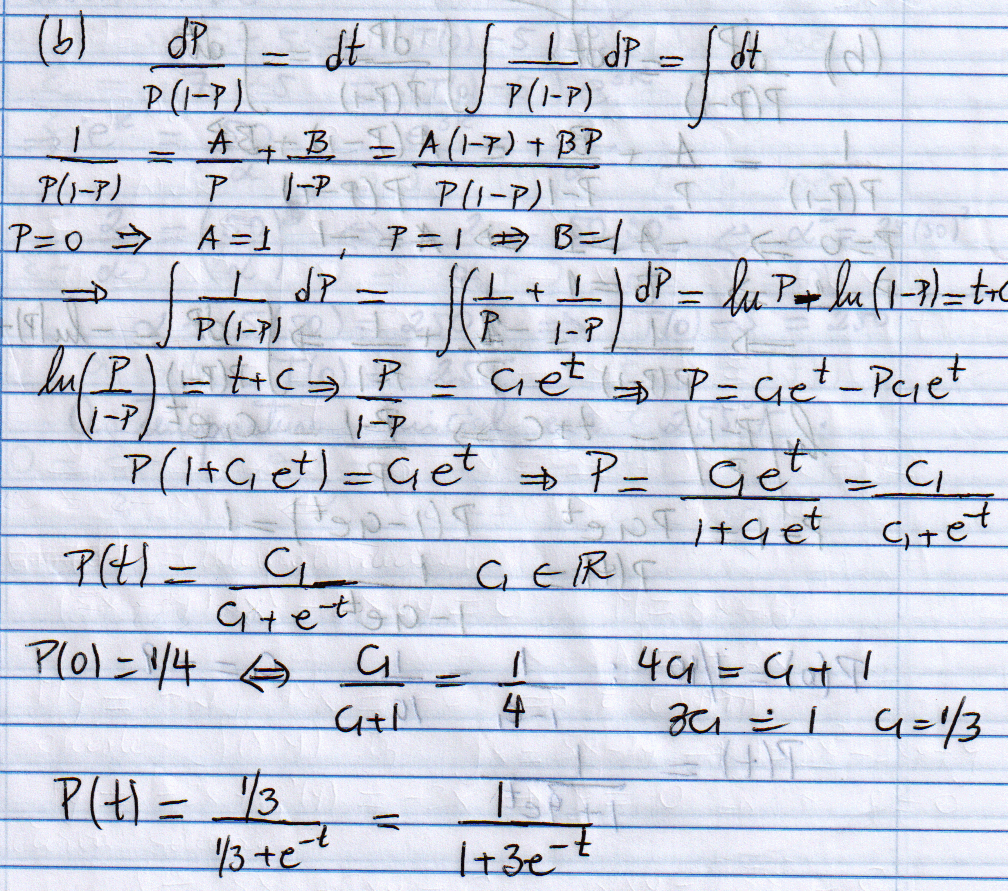 (b) dP/P(1-P) = dt ∫ 1/P(1-P) dP = ∫ dt
1/P(1-P) = A/P + B/1-P = A(1-P) + BP/P(1-P)
P=0 ⇒ A=1, P=1 ⇒ B=1
⇒ ∫ 1/P(1-P) dP = ∫(1/P + 1/1-P) dP = ln P - ln(1-P) = t+C
ln(P/1-P) = t+C ⇒ P/1-P = C₁e^t ⇒ P = C₁e^t - PC₁e^t
P(1+C₁e^t) = C₁e^t ⇒ P = C₁e^t/1+C₁e^t = C₁/C₁+e^-t
P(t) = C₁/C₁+e^-t C₁ ∈ ℝ
P(0) = 1/4 ⇔ C₁/C₁+1 = 1/4 4C₁ = C₁+1
3C₁ = 1 C₁=1/3
P(t) = 1/3/1/3+e^-t = 1/1+3e^-t